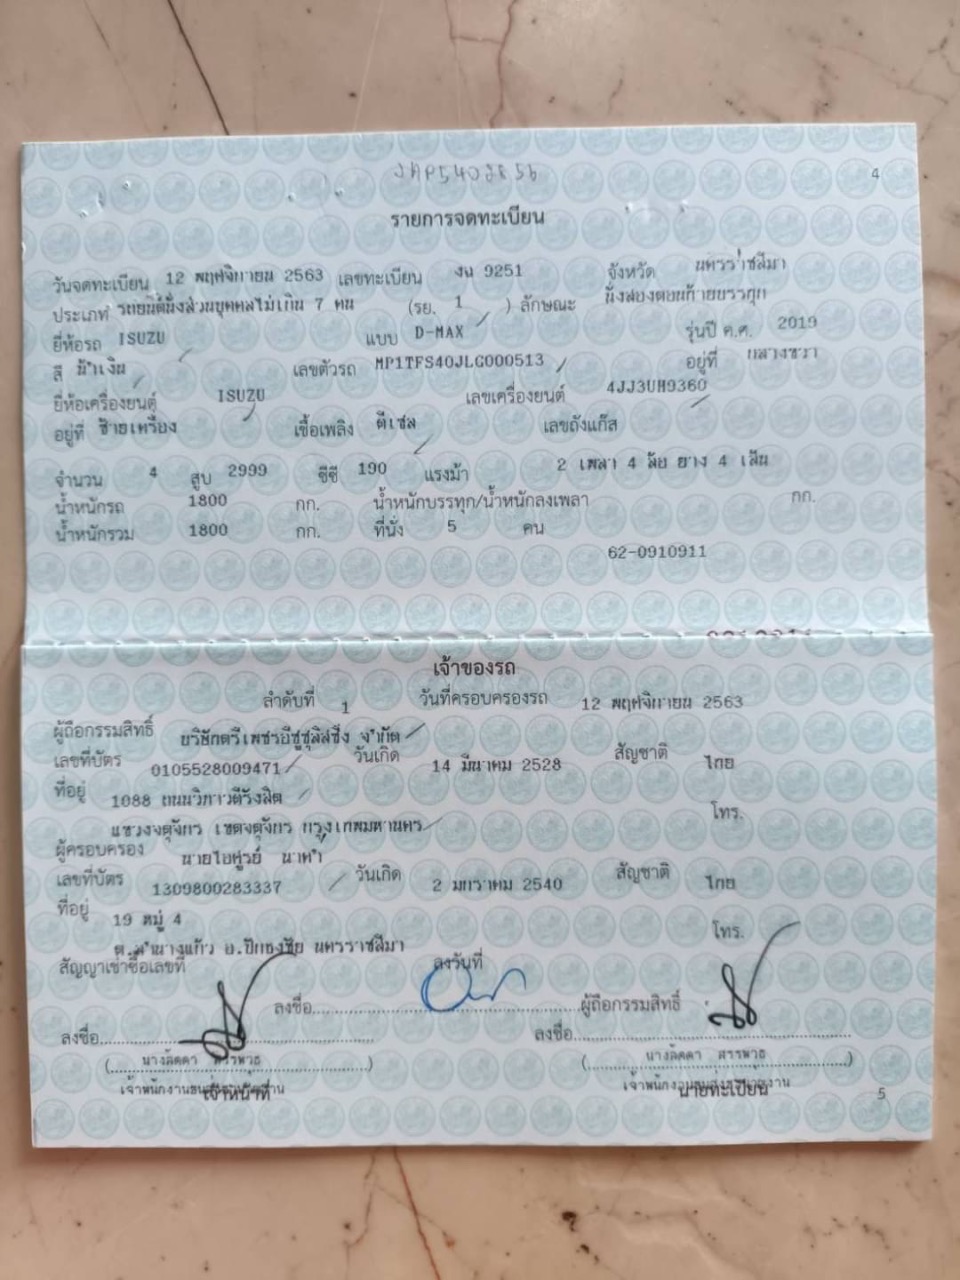 4
รายการจดทะเบียน
วันจดทะเบียน 12 พฤศจิกายน 2563 เลขทะเบียน งน 9251 จังหวัด นครราชสีมา
ประเภท รถยนต์นั่งส่วนบุคคลไม่เกิน 7 คน (รย. 1 ) ลักษณะ นั่งสองตอนท้ายบรรทุก
ยี่ห้อรถ ISUZU แบบ D-MAX รุ่นปี ค.ศ. 2019
สี น้ำเงิน เลขตัวรถ MP1TFS40JLG000513 อยู่ที่ กลางขวา
ยี่ห้อเครื่องยนต์ ISUZU เลขเครื่องยนต์ 4JJ3UH9360
อยู่ที่ ซ้ายเครื่อง เชื้อเพลิง ดีเซล เลขถังแก๊ส
จำนวน 4 สูบ 2999 ซีซี 190 แรงม้า 2 เพลา 4 ล้อ ยาง 4 เส้น
น้ำหนักรถ 1800 กก. น้ำหนักบรรทุก/น้ำหนักลงเพลา กก.
น้ำหนักรวม 1800 กก. ที่นั่ง 5 คน
62-0910911
เจ้าของรถ
ลำดับที่ 1 วันที่ครอบครองรถ 12 พฤศจิกายน 2563
ผู้ถือกรรมสิทธิ์ บริษัทตรีเพชรอีซูซุลิสซิ่ง จำกัด
เลขที่บัตร 0105528009471 วันเกิด 14 มีนาคม 2528 สัญชาติ ไทย
ที่อยู่ 1088 ถนนวิภาวดีรังสิต
แขวงจตุจักร เขตจตุจักร กรุงเทพมหานคร โทร.
ผู้ครอบครอง นาย
เลขที่บัตร 1309800283337 วันเกิด 2 มกราคม 2540 สัญชาติ ไทย
ที่อยู่ 19 หมู่ 4 โทร.
ต.สำนางแก้ว อ.ปักธงชัย นครราชสีมา
สัญญาเช่าซื้อเลขที่ ลงวันที่
ลงชื่อ ผู้ถือกรรมสิทธิ์
ลงชื่อ ลงชื่อ
(นางลัดดา สรรพวุธ) (นางลัดดา สรรพวุธ)
เจ้าหน้าที่ นายทะเบียน
5